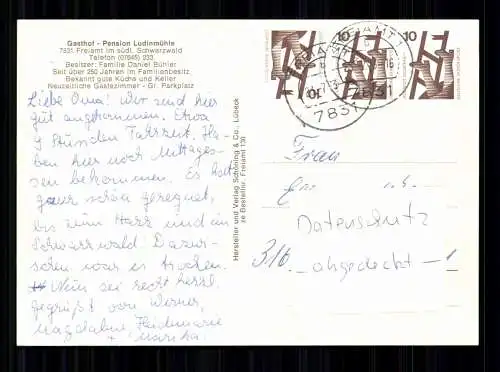 Gasthof - Pension Ludinmühle
7831 Freiamt im südl. Schwarzwald
Telefon (07645) 233
Besitzer: Familie Daniel Bühler
Seit über 250 Jahren im Familienbesitz
Bekannt gute Küche und Keller
Neuzeitliche Gästezimmer - Gr. Parkplatz
Liebe Oma! Wir sind hier
gut angekommen. Etwa
9 Stunden Fahrzeit. Ha-
ben hier noch Mittages-
sen bekommen. Es hat
ganz schön geregnet,
bis zum Harz und im
Schwarzwald. Dazwi-
schen war es trocken.
Nun sei recht herzl.
gegrüßt von Werner,
Magdalene, Heidemarie
+ Marika.
Hersteller und Verlag Schöning & Co., Lübeck
ze Bestellnr. Freiamt 130
10
10
FREIAMT 1
7831
7831
Frau
Datenschutz
abgedeckt